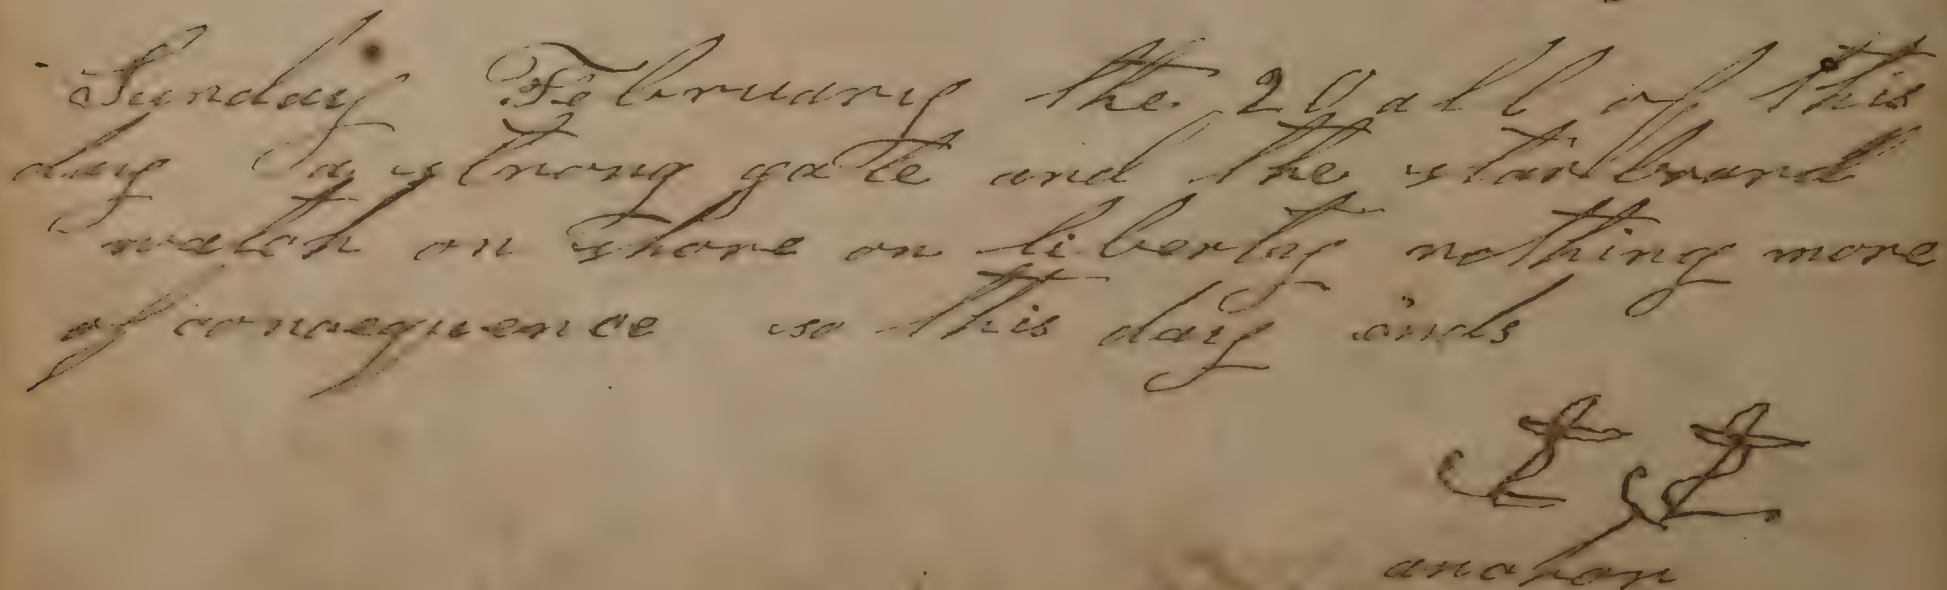 Sunday February the 20 all of this
day a strong gale and the starbrard
watch on shore on liberty nothing more
of consequence so this day ends
anchor